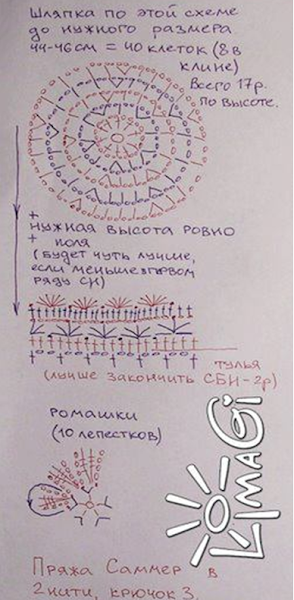 Шляпка по этой схеме
до нужного размера
44-46см = 40 клеток (8 в
клине)
Всего 17р.
по высоте.
+
нужная высота ровно
+ поля
(будет чуть лучше,
если меньше в первом
ряду СН)
тулья
(лучше закончить СБН-2р)
Ромашки
(10 лепестков)
KimaGi
Пряжа Саммер в
2 нити, крючок 3.